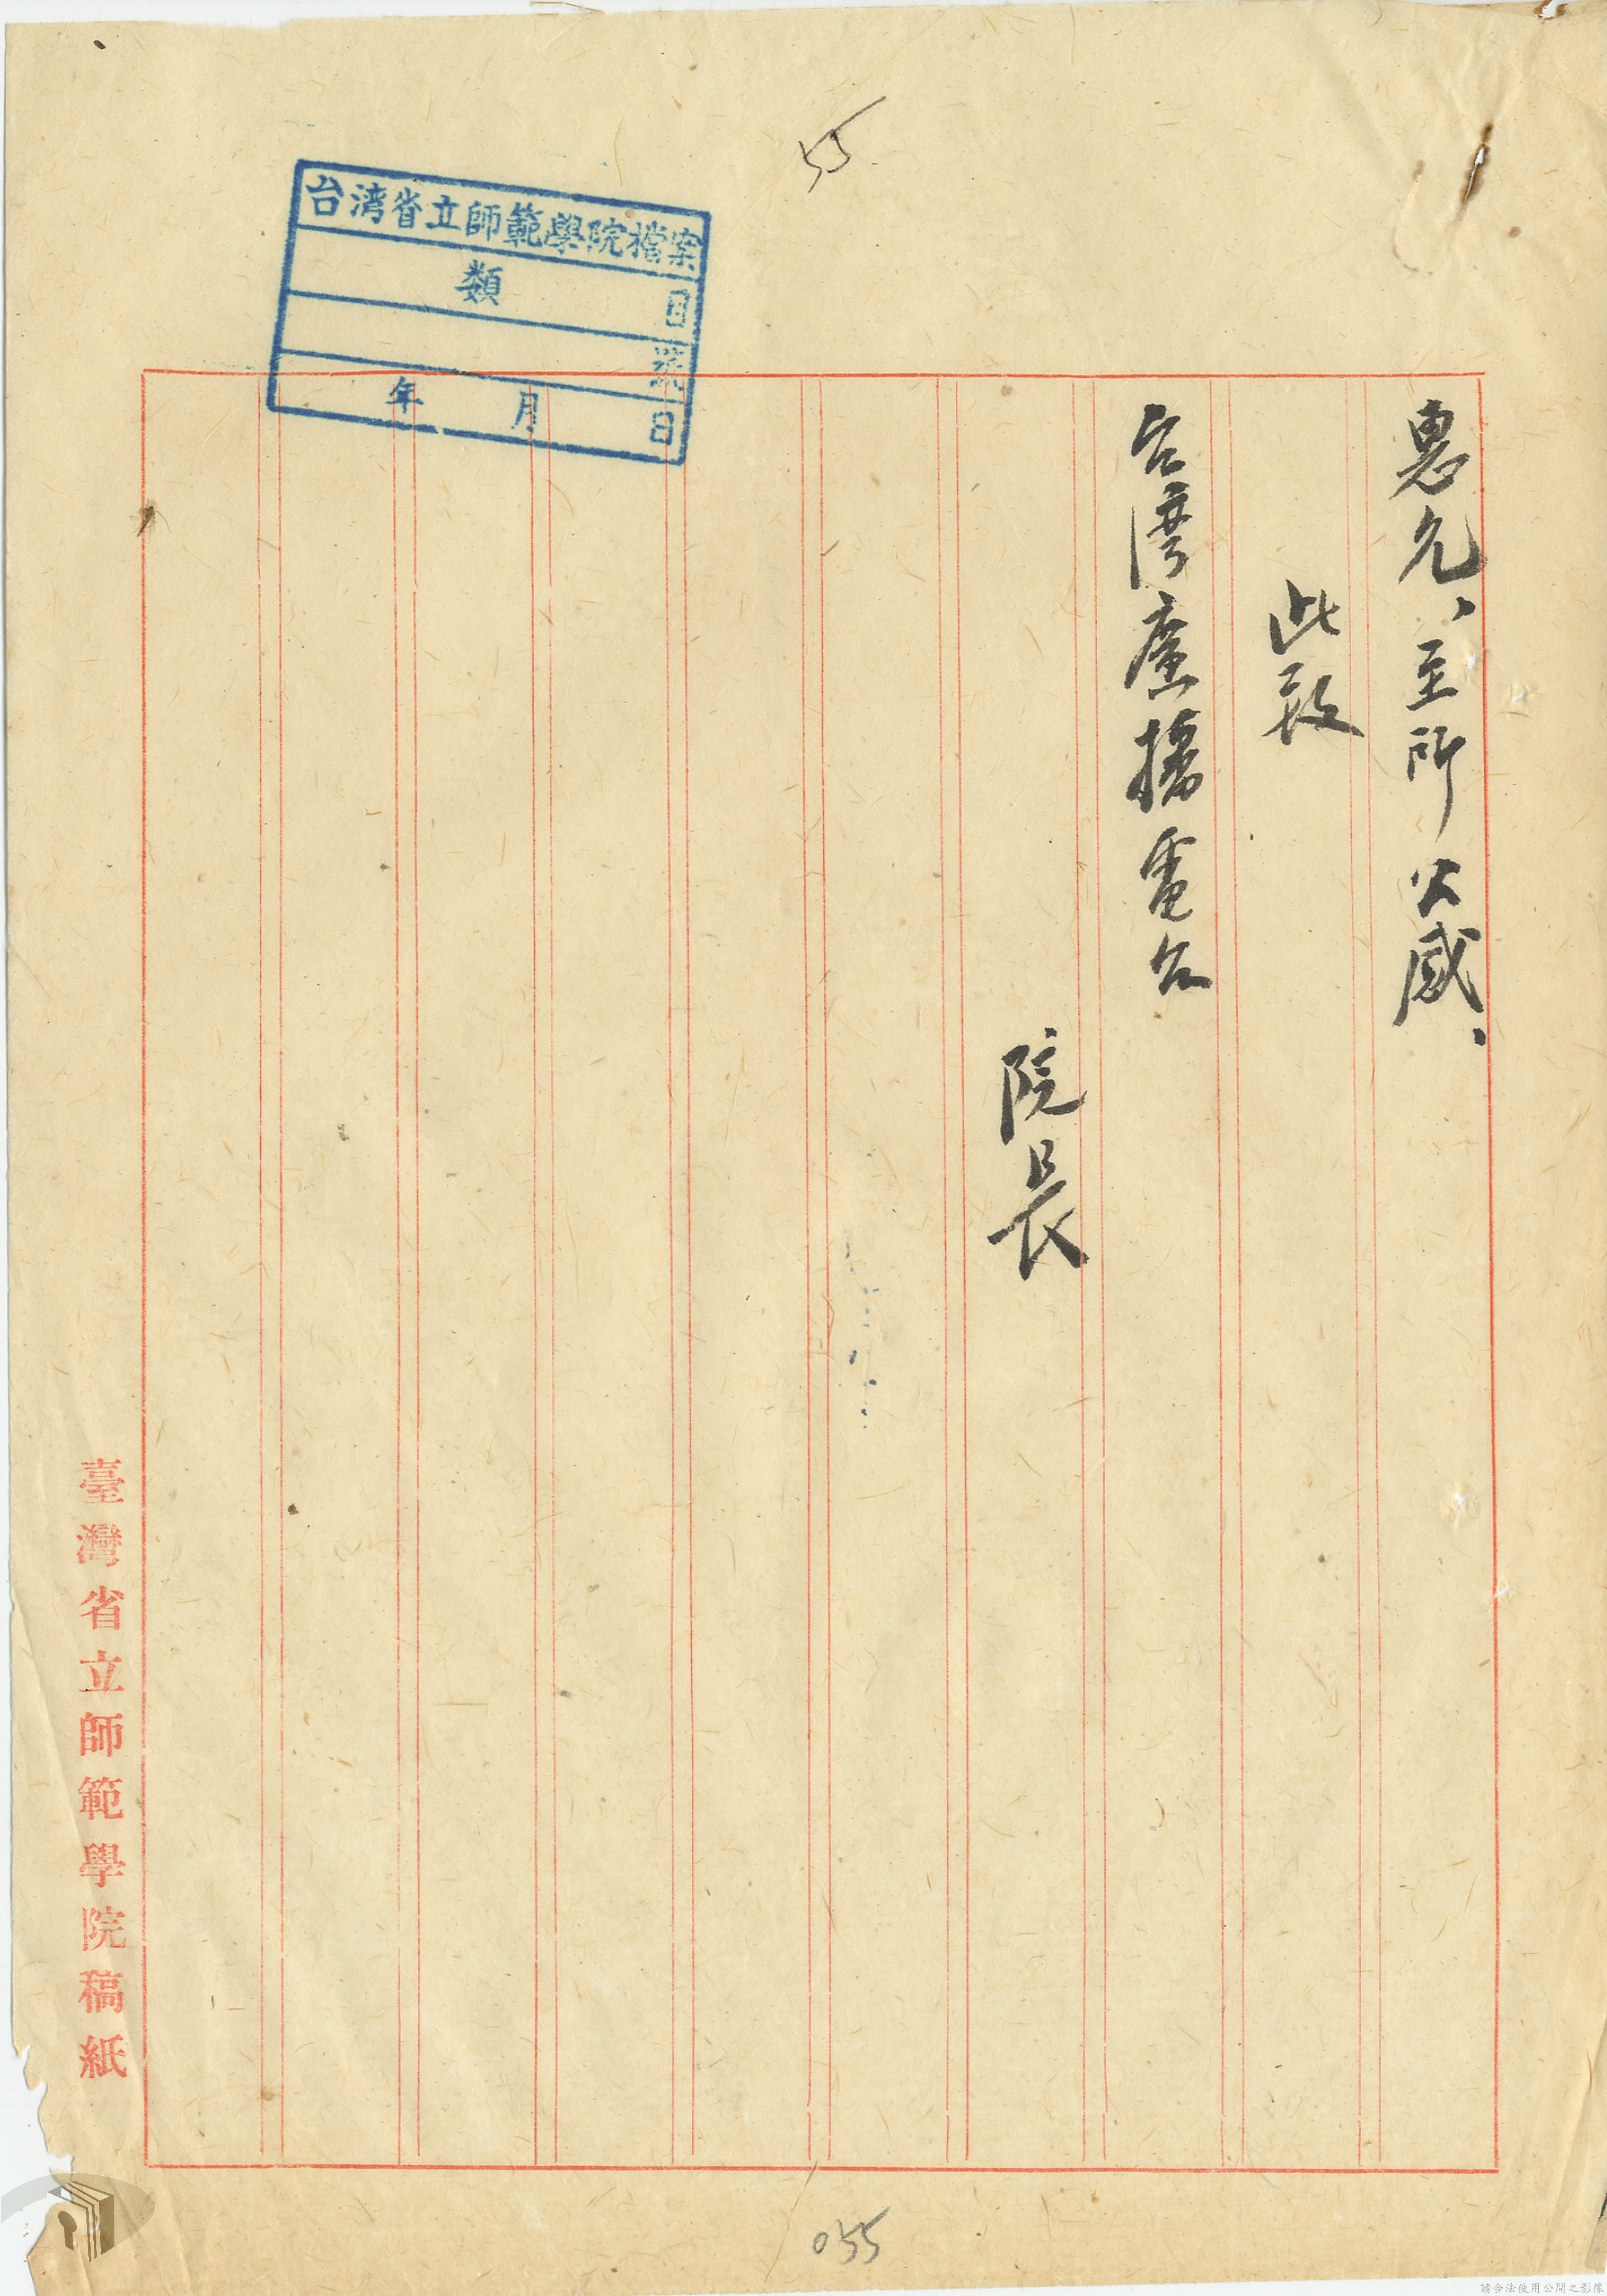 55
台湾省立師範學院檔案
類 目
號
年 月 日
惠允、至所公感、
此致
台湾廣播電台
院長
臺灣省立師範學院稿紙
055
請合法使用公開之影像